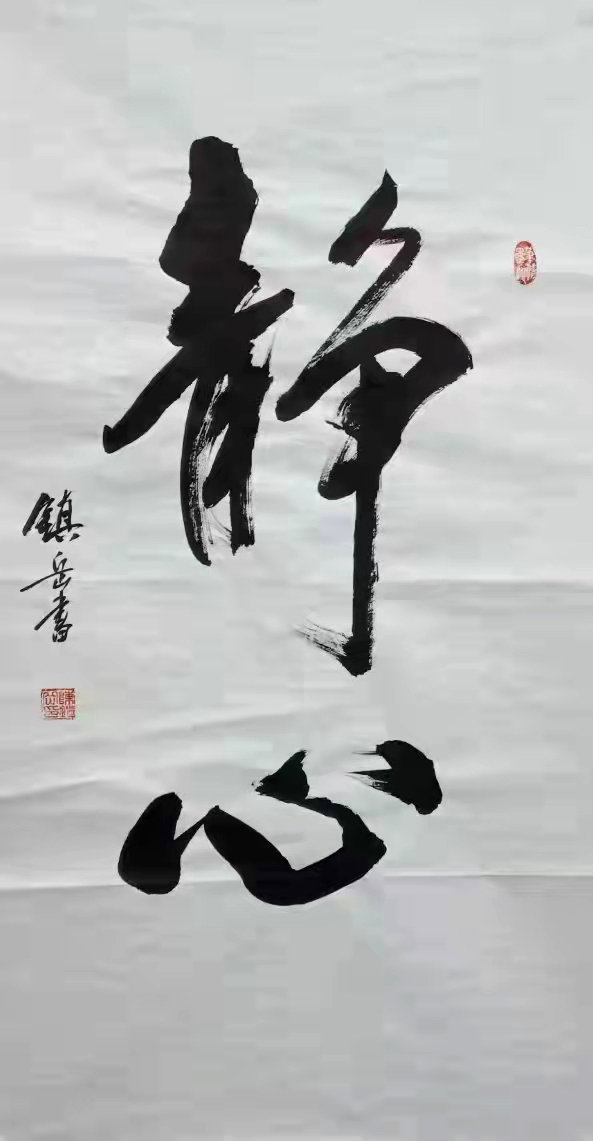 静心
鎮岳書